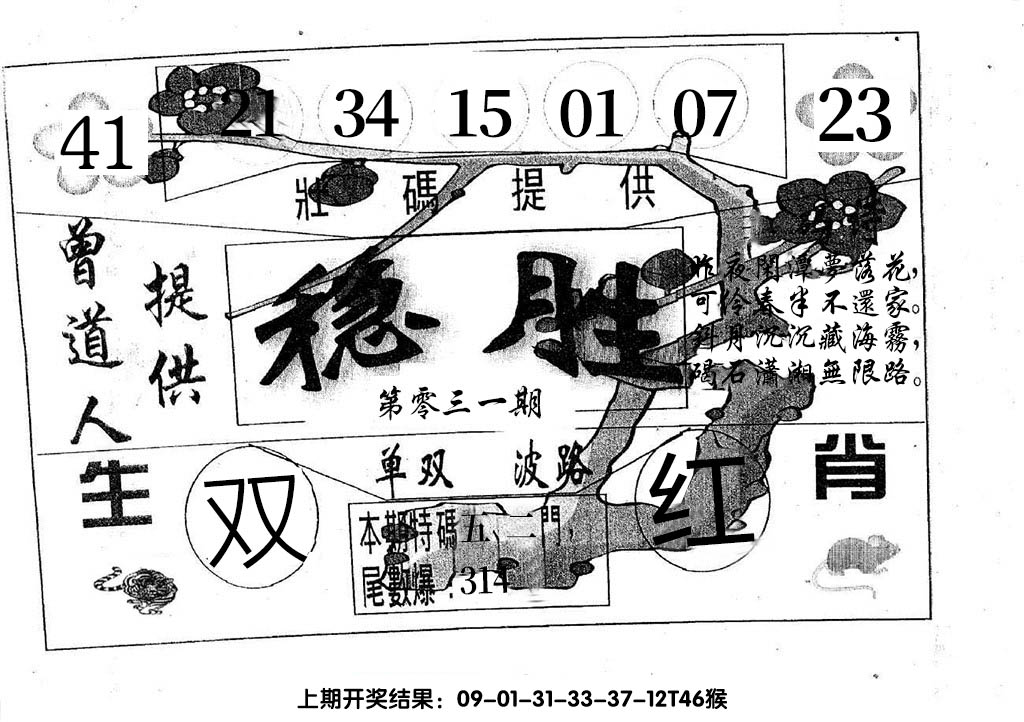 41 21 34 15 01 07 23
壯碼提供
曾道人
提供
稳胜
第零三一期
昨夜閑潭夢落花，
可怜春半不還家。
斜月沉沉藏海霧，
碣石瀟湘無限路。
单双 波路
生肖
双
红
本期特碼五、二門，
尾數爆：314
上期开奖结果：09-01-31-33-37-12T46猴